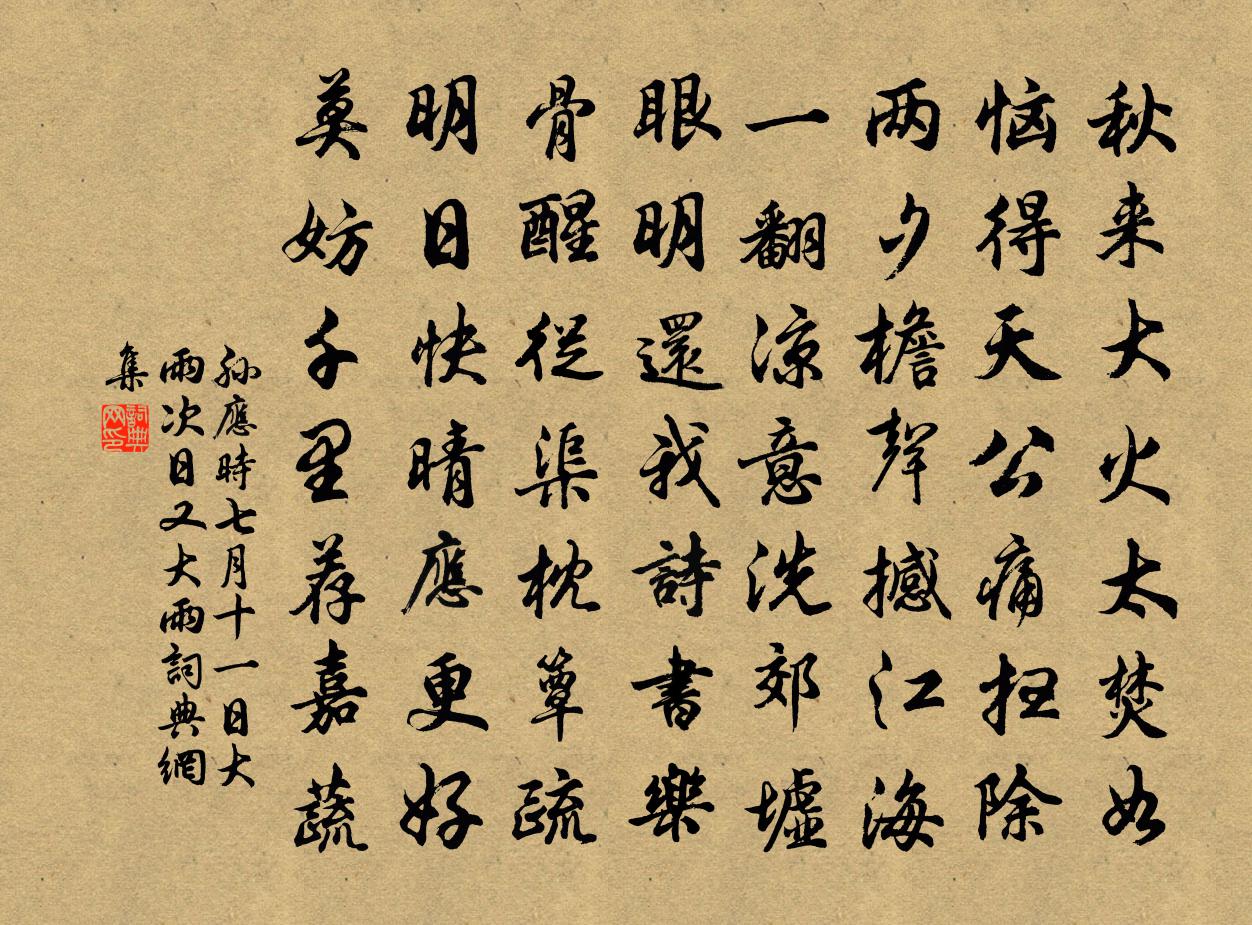 秋来大火太焚如
恼得天公痛扫除
两夕檐聲撼江海
一翻凉意洗郊墟
眼明還我詩書樂
骨醒從渠枕簟疏
明日快晴應更好
莫妨千里荐嘉蔬
孙應時七月十一日大
雨次日又大雨詞典網
集
詞典网印